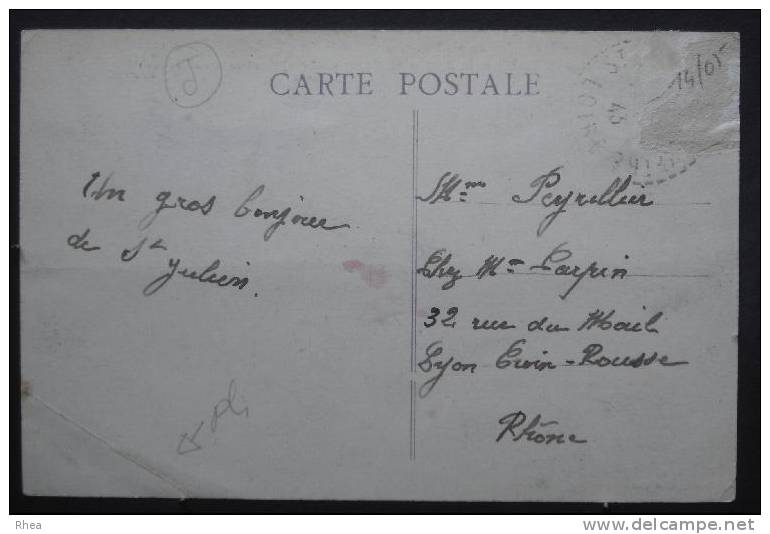 J
CARTE POSTALE
14/05
LOIR
43
Un gros bonjour
de St
Julien.
Mme Peyrellier
Chez Mme Carpin
32 rue du Mail
Lyon Croix-Rousse
Rhône
pli
Rhea
www.delcampe.net